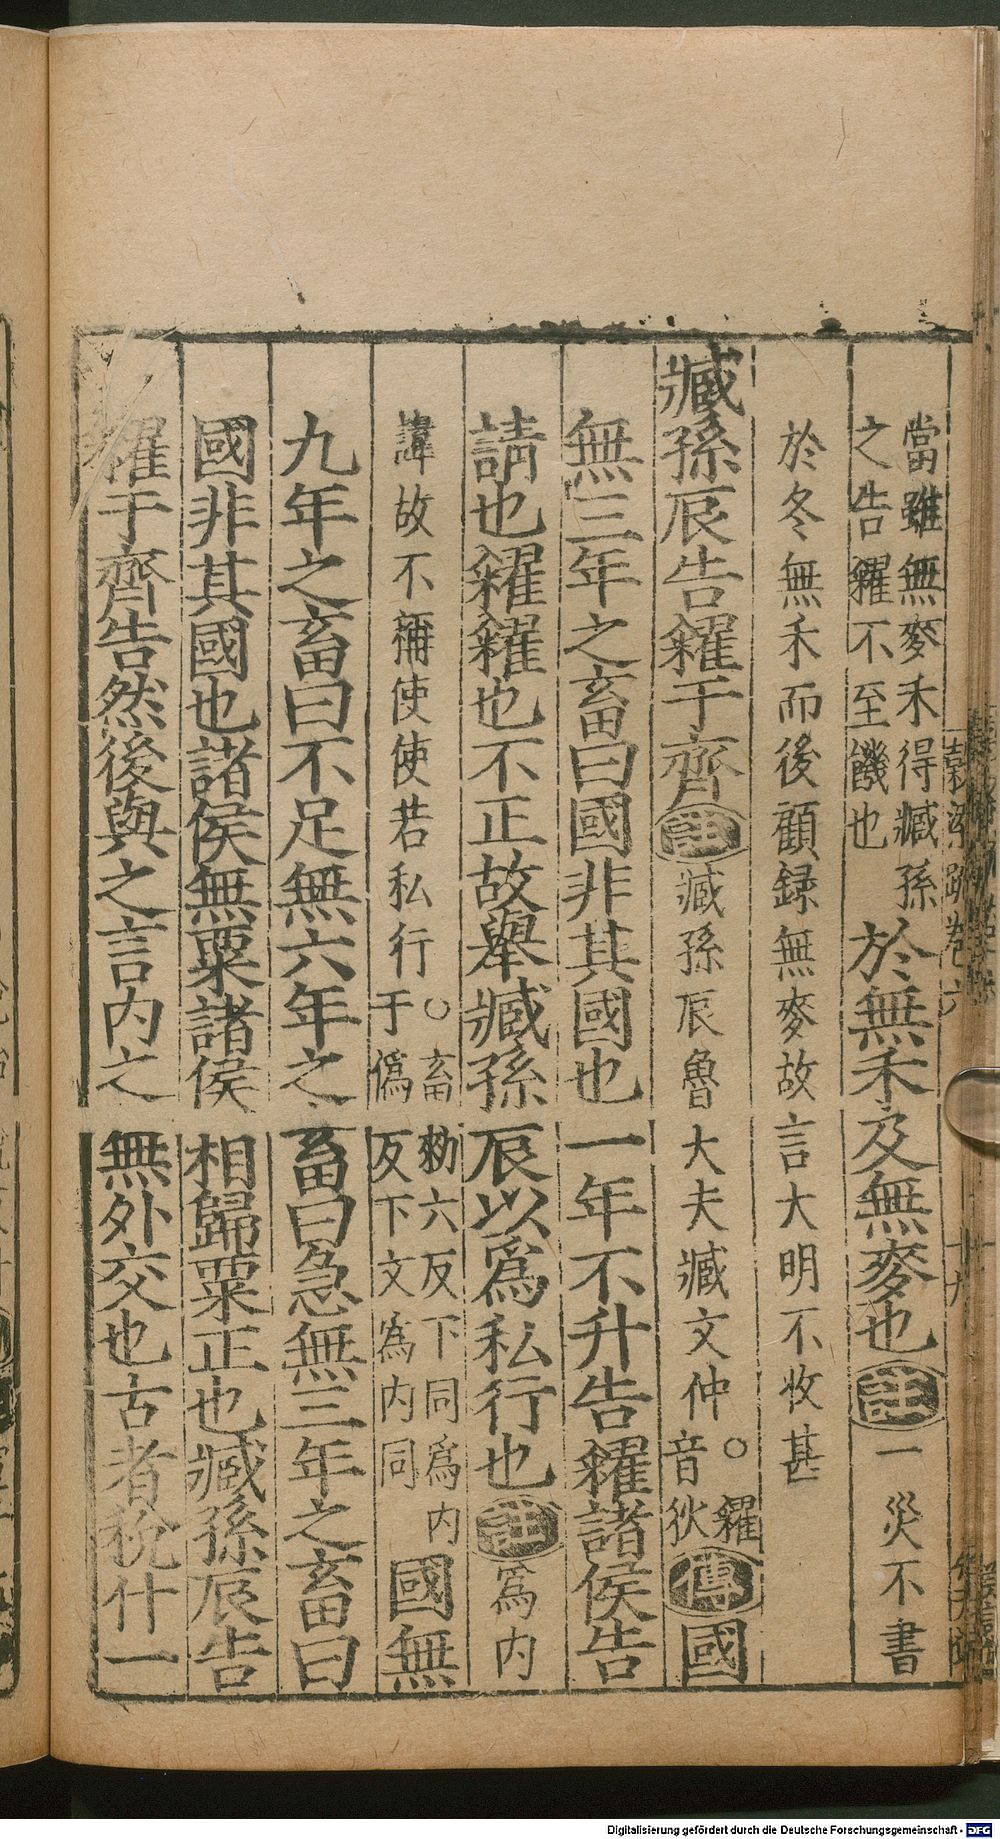 當雖無麥禾得臧孫
之告糴不至饑也
於無禾及無麥也註一災不書
於冬無禾而後顧録無麥故言大明不收甚
臧孫辰告糴于齊註臧孫辰魯大夫臧文仲○糴
音狄
傳國
無三年之畜曰國非其國也一年不升告糴諸侯告
請也糴糴也不正故舉臧孫辰以爲私行也註爲内
諱故不稱使使若私行○畜勑六反下同爲内
于僞反下文爲内同
國無
九年之畜曰不足無六年之畜曰急無三年之畜曰
國非其國也諸侯無粟諸侯相歸粟正也臧孫辰告
糴于齊告然後與之言内之無外交也古者稅什一
Digitalisierung gefördert durch die Deutsche Forschungsgemeinschaft - DFG